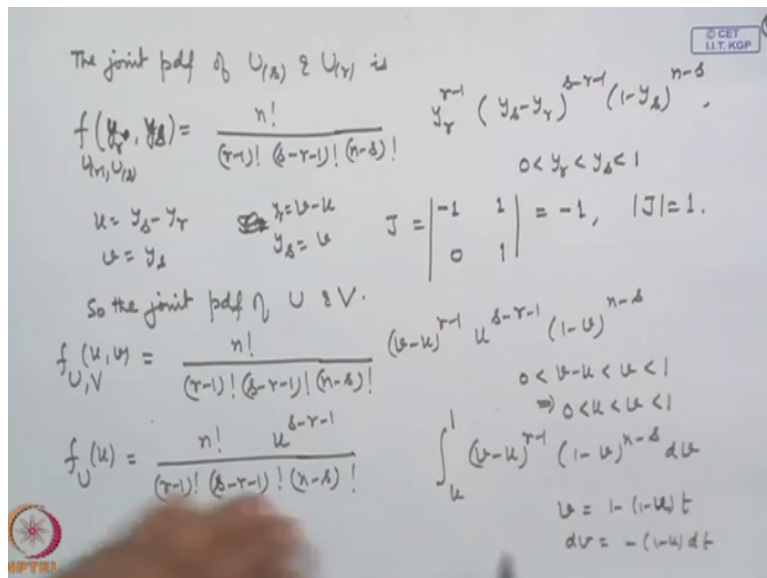 © CET
I.I.T. KGP
The joint pdf of U(s) & U(r) is
f U(r), U(s) (y_r, y_s) = n! / (r-1)! (s-r-1)! (n-s)! y_r^{r-1} (y_s - y_r)^{s-r-1} (1-y_s)^{n-s},
0 < y_r < y_s < 1
u = y_s - y_r y_r = v-u J = | -1 1 | = -1, |J| = 1.
v = y_s y_s = v | 0 1 |
So the joint pdf of U & V.
f_{U,V} (u, v) = n! / (r-1)! (s-r-1)! (n-s)! (v-u)^{r-1} u^{s-r-1} (1-v)^{n-s}
0 < v-u < v < 1
⇒ 0 < u < v < 1
f_U (u) = n! u^{s-r-1} / (r-1)! (s-r-1)! (n-s)! ∫_u^1 (v-u)^{r-1} (1-v)^{n-s} dv
v = 1 - (1-u) t
dv = - (1-u) dt
NPTEL